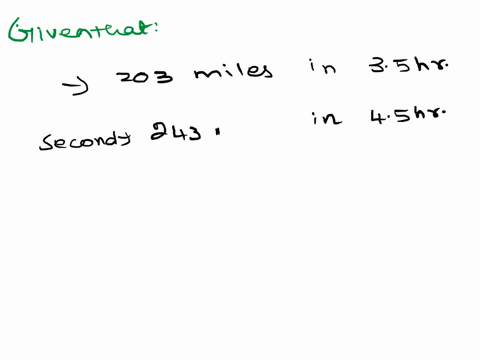 Given that:
→ 203 miles in 3.5 hr.
Second → 243 . in 4.5 hr.